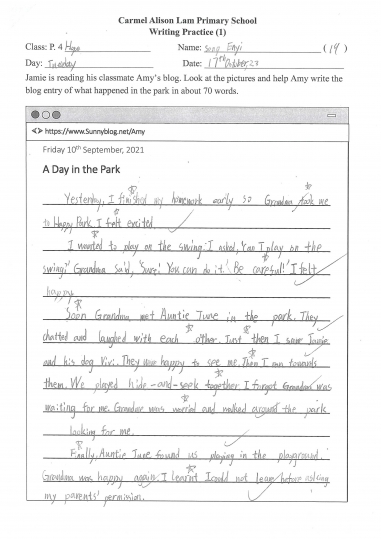 Carmel Alison Lam Primary School
Writing Practice (1)
Class: P. 4 Hope Name: Song Enyi (19)
Day: Tuesday Date: 17th October, 23
Jamie is reading his classmate Amy's blog. Look at the pictures and help Amy write the
blog entry of what happened in the park in about 70 words.
https://www.Sunnyblog.net/Amy
Friday 10th September, 2021
A Day in the Park
Yesterday, I finished my homework early so Grandma took me
to Happy Park. I felt excited.
I wanted to play on the swing. I asked, 'Can I play on the
swing?' Grandma said, 'Sure! You can do it. Be careful!' I felt
happy.
Soon Grandma met Auntie June in the park. They
chatted and laughed with each other. Just then I saw Jamie
and his dog Vivi. They were happy to see me. Then I ran towards
them. We played hide-and-seek together. I forgot Grandma was
waiting for me. Grandma was worried and walked around the park
looking for me.
Finally, Auntie June found us playing in the playground.
Grandma was happy again. I learnt I could not leave before asking
my parents' permission.